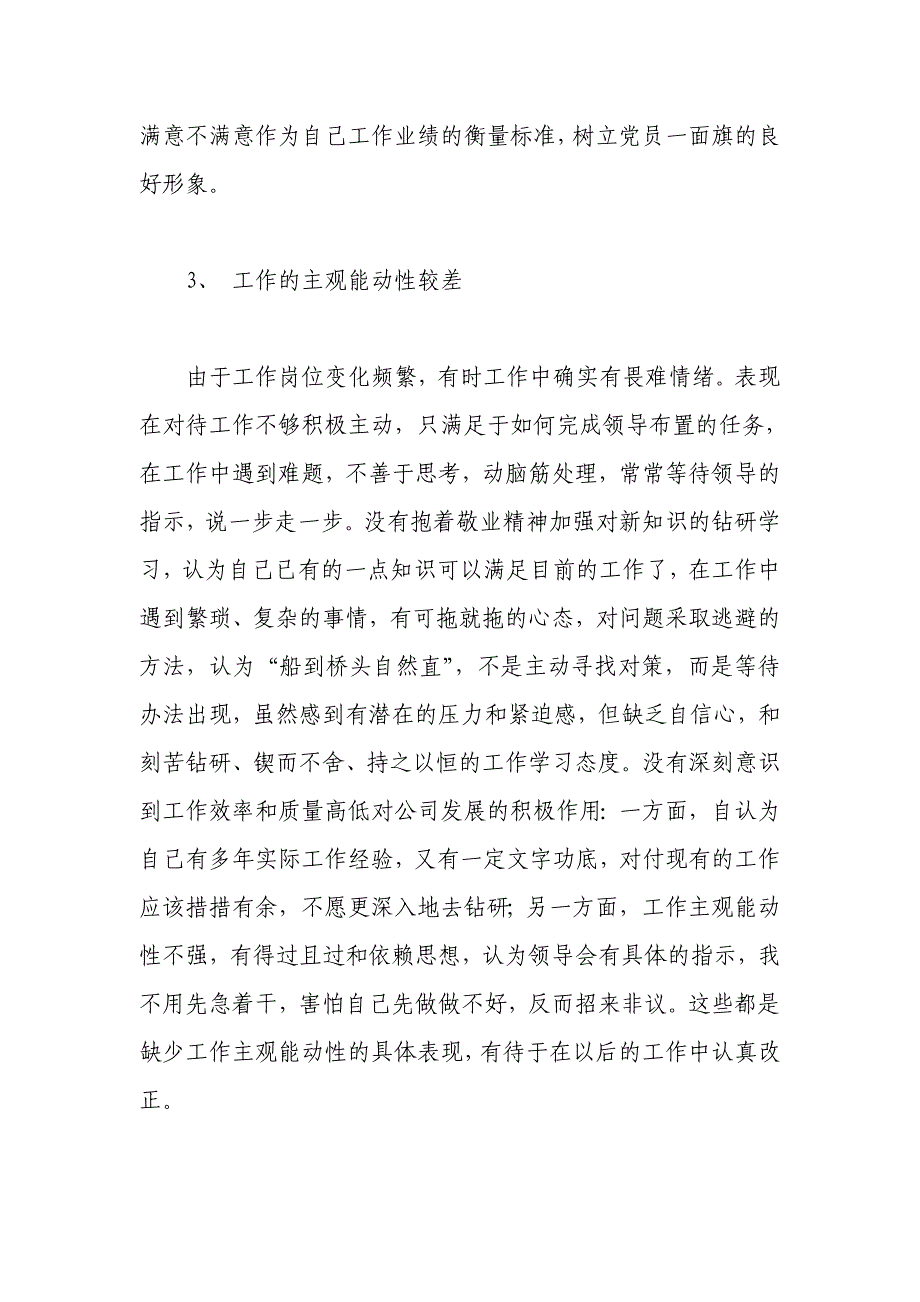 满意不满意作为自己工作业绩的衡量标准，树立党员一面旗的良
好形象。
3、 工作的主观能动性较差
由于工作岗位变化频繁，有时工作中确实有畏难情绪。表现
在对待工作不够积极主动，只满足于如何完成领导布置的任务，
在工作中遇到难题，不善于思考，动脑筋处理，常常等待领导的
指示，说一步走一步。没有抱着敬业精神加强对新知识的钻研学
习，认为自己已有的一点知识可以满足目前的工作了，在工作中
遇到繁琐、复杂的事情，有可拖就拖的心态，对问题采取逃避的
方法，认为“船到桥头自然直”，不是主动寻找对策，而是等待
办法出现，虽然感到有潜在的压力和紧迫感，但缺乏自信心，和
刻苦钻研、锲而不舍、持之以恒的工作学习态度。没有深刻意识
到工作效率和质量高低对公司发展的积极作用：一方面，自认为
自己有多年实际工作经验，又有一定文字功底，对付现有的工作
应该措措有余，不愿更深入地去钻研；另一方面，工作主观能动
性不强，有得过且过和依赖思想，认为领导会有具体的指示，我
不用先急着干，害怕自己先做做不好，反而招来非议。这些都是
缺少工作主观能动性的具体表现，有待于在以后的工作中认真改
正。